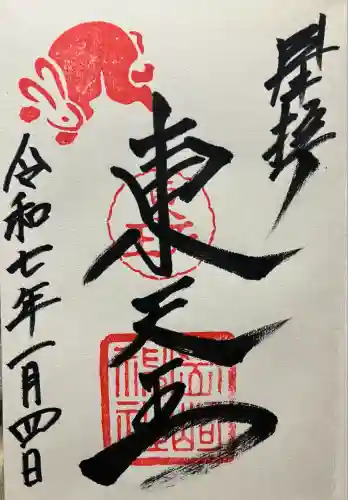 昇拝
東天王
令和七年一月四日